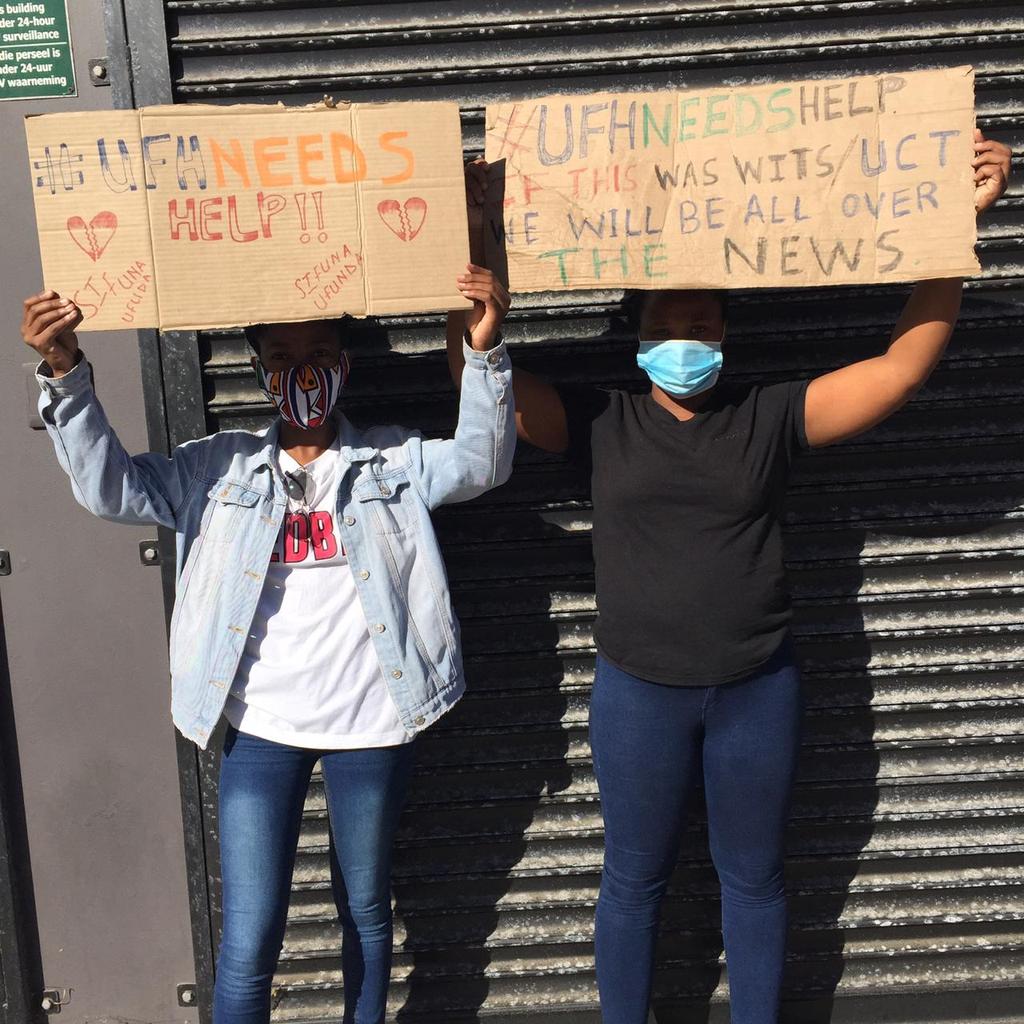 s building
der 24-hour
surveillance
die perseel is
nder 24-uur
V waarneming
#UFHNEEDS
HELP!!
SIFUNA
UFUNDA
SIFUNA
UFUNDA
#UFHNEEDSHELP.
IF THIS WAS WITS/UCT
WE WILL BE ALL OVER
THE NEWS.
EDB